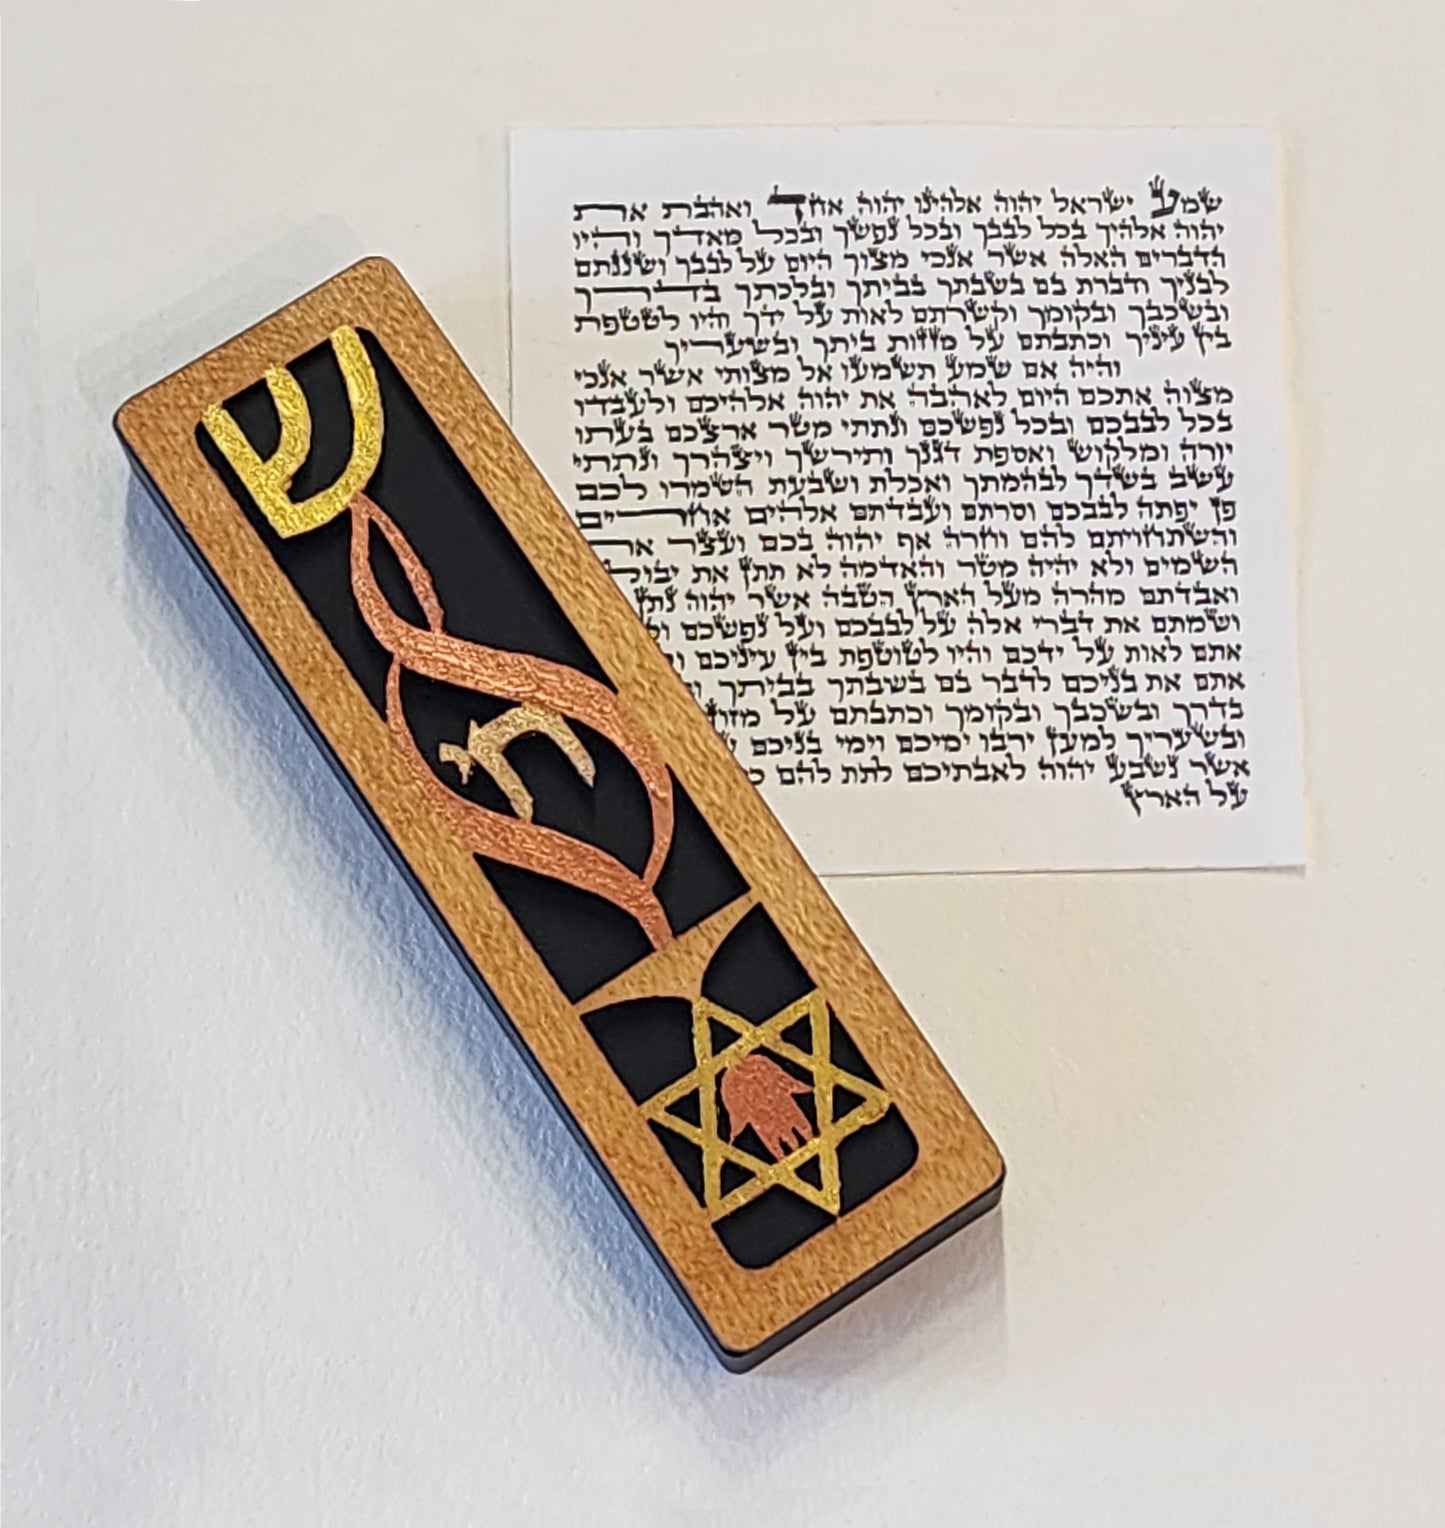 שמע ישראל יהוה אלהינו יהוה אחד ואהבת את
יהוה אלהיך בכל לבבך ובכל נפשך ובכל מאדך והיו
הדברים האלה אשר אנכי מצוך היום על לבבך ושננתם
לבניך ודברת בם בשבתך בביתך ובלכתך בדרך
ובשכבך ובקומך וקשרתם לאות על ידך והיו לטטפת
בין עיניך וכתבתם על מזזות ביתך ובשעריך
והיה אם שמע תשמעו אל מצותי אשר אנכי
מצוה אתכם היום לאהבה את יהוה אלהיכם ולעבדו
בכל לבבכם ובכל נפשכם ונתתי מטר ארצכם בעתו
יורה ומלקוש ואספת דגנך ותירשך ויצהרך ונתתי
עשב בשדך לבהמתך ואכלת ושבעת השמרו לכם
פן יפתה לבבכם וסרתם ועבדתם אלהים אחרים
והשתחויתם להם וחרה אף יהוה בכם ועצר את
השמים ולא יהיה מטר והאדמה לא תתן את
ואבדתם מהרה מעל הארץ הטבה אשר יהוה נתן
ושמתם את דברי אלה על לבבכם ועל נפשכם
אתם לאות על ידכם והיו לטוטפת בין עיניכם
אתם את בניכם לדבר בם בשבתך בביתך
בדרך ובשכבך ובקומך וכתבתם על
ובשעריך למען ירבו ימיכם וימי בניכם
אשר נשבע יהוה לאבתיכם לתת להם
על הארץ
ש
חי